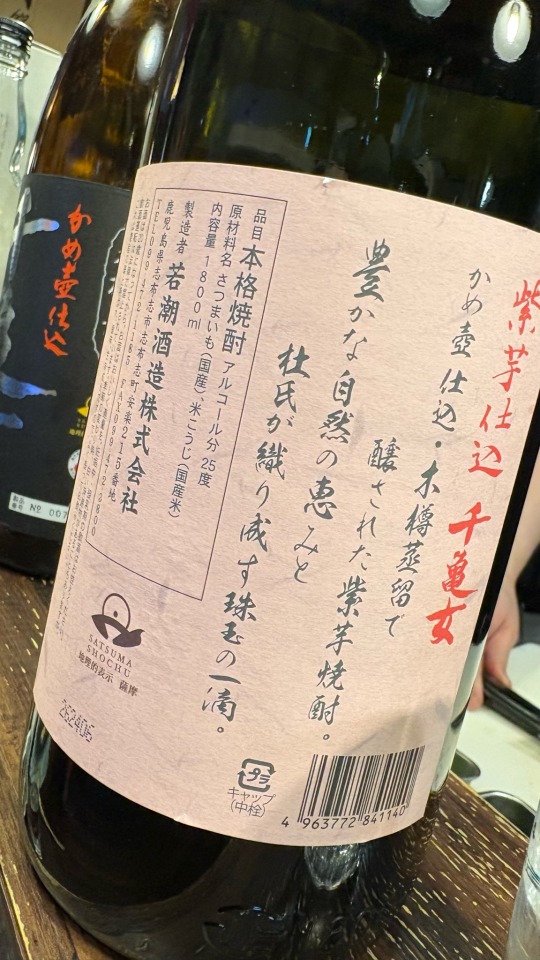 紫芋仕込 千亀女
かめ壺仕込・木樽蒸留で
醸された紫芋焼酎。
豊かな自然の恵みと
杜氏が織り成す珠玉の一滴。
品目 本格焼酎 アルコール分 25度
原材料名 さつまいも(国産)、米こうじ(国産米)
内容量 1800ml
製造者 若潮酒造株式会社
鹿児島県志布志市志布志町安楽215番地
SATSUMA
SHOCHU
地理的表示 薩摩
プラ
キャップ
(中栓)
4 963772 841140
かめ壺仕込